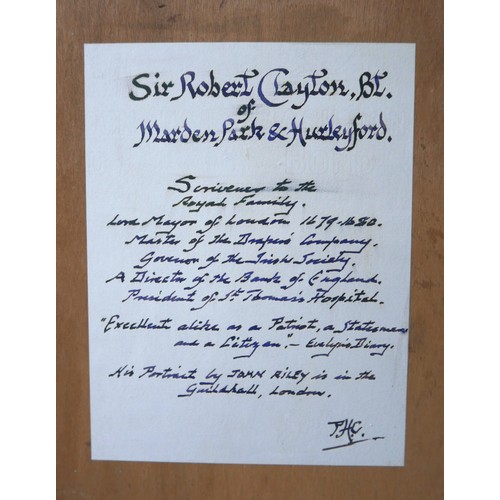 Sir Robert Clayton, Bt.
of
Marden Park & Hurleyford.
Scrivener to the
Royal Family.
Lord Mayor of London 1679-1680.
Master of the Drapers Company.
Governor of the Irish Society.
A Director of the Bank of England.
President of St Thomas's Hospital.
"Excellent alike as a Patriot, a Statesman
and a Citizen". - Evelyn's Diary.
His Portrait by JOHN RILEY is in the
Guildhall, London.
P.H.C.